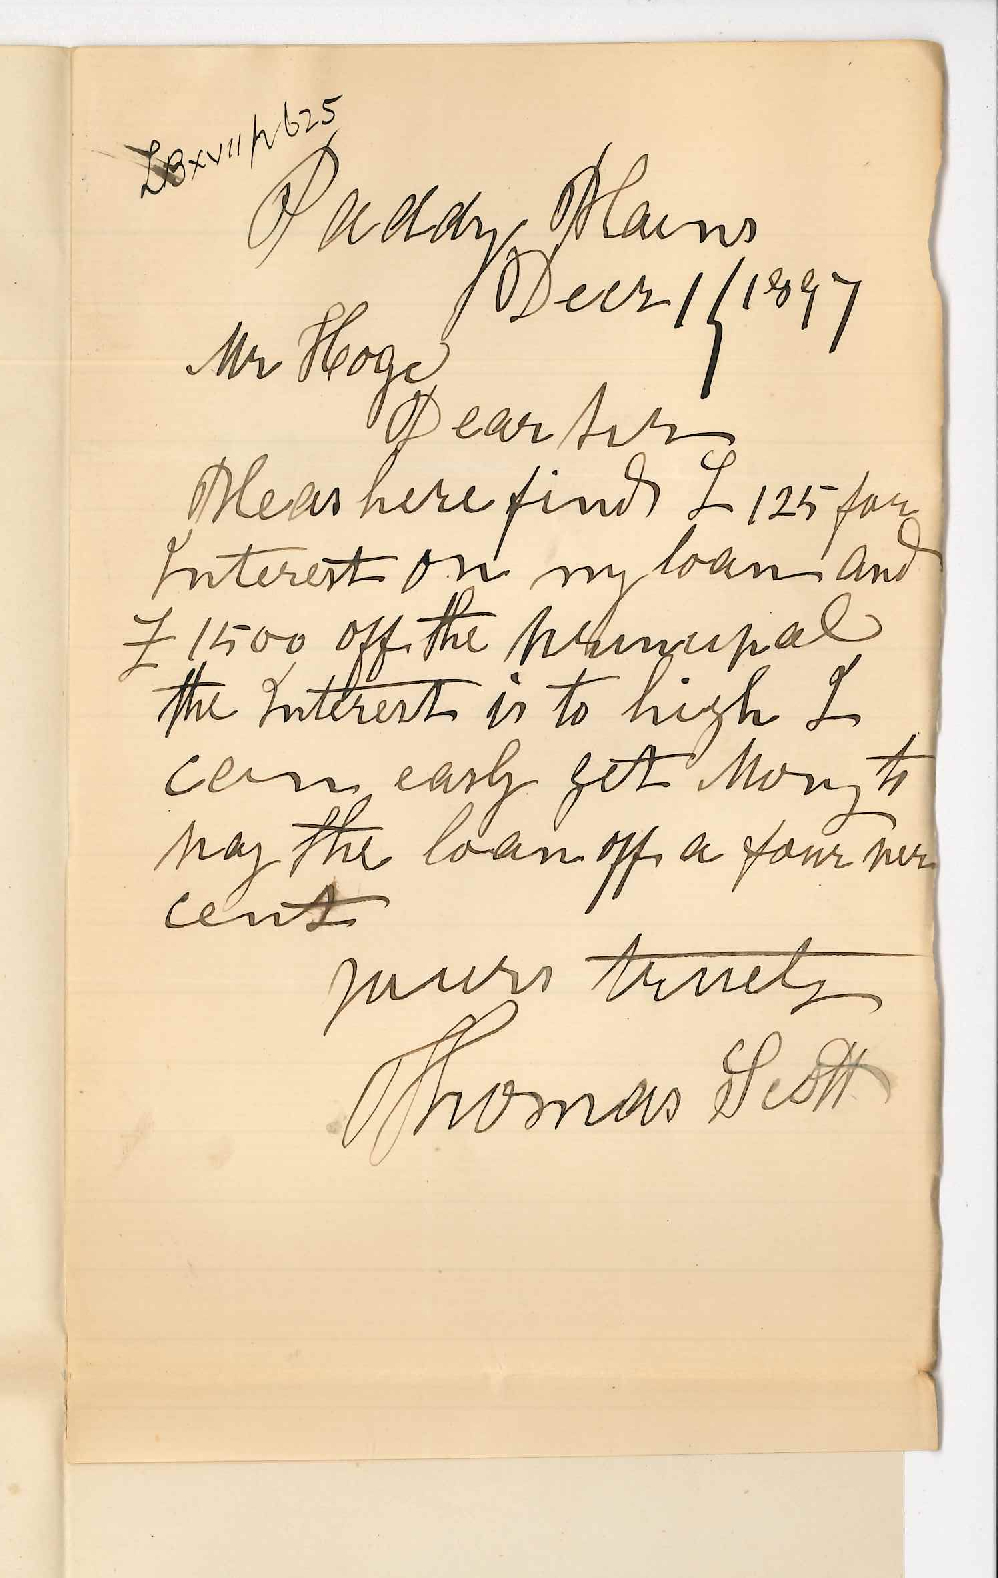 LBxvii p 625
Paddy Plains
Decr 1/1897
Mr Hoge
Dear sir
Pleas here find £ 125 for
Interest on my loan and
£ 1500 off the principal
the Interest is to high I
can easly get Mony to
pay the loan off a four per
cent
yours truely
Thomas Scott